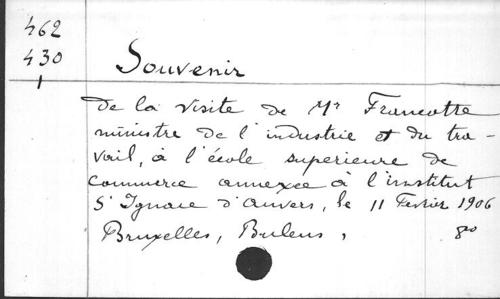 462
430
1
Souvenir
de la visite de Mr Francotte
ministre de l'industrie et du tra-
vail, à l'école superieure de
commerce annexée à l'institut
S' Ignace d'Anvers, le 11 Fevrier 1906
Bruxelles, Bulens, 8o